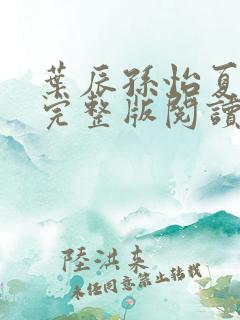 葉辰孫怡夏
完整版閱讀
陸洪未
未经同意禁止转载